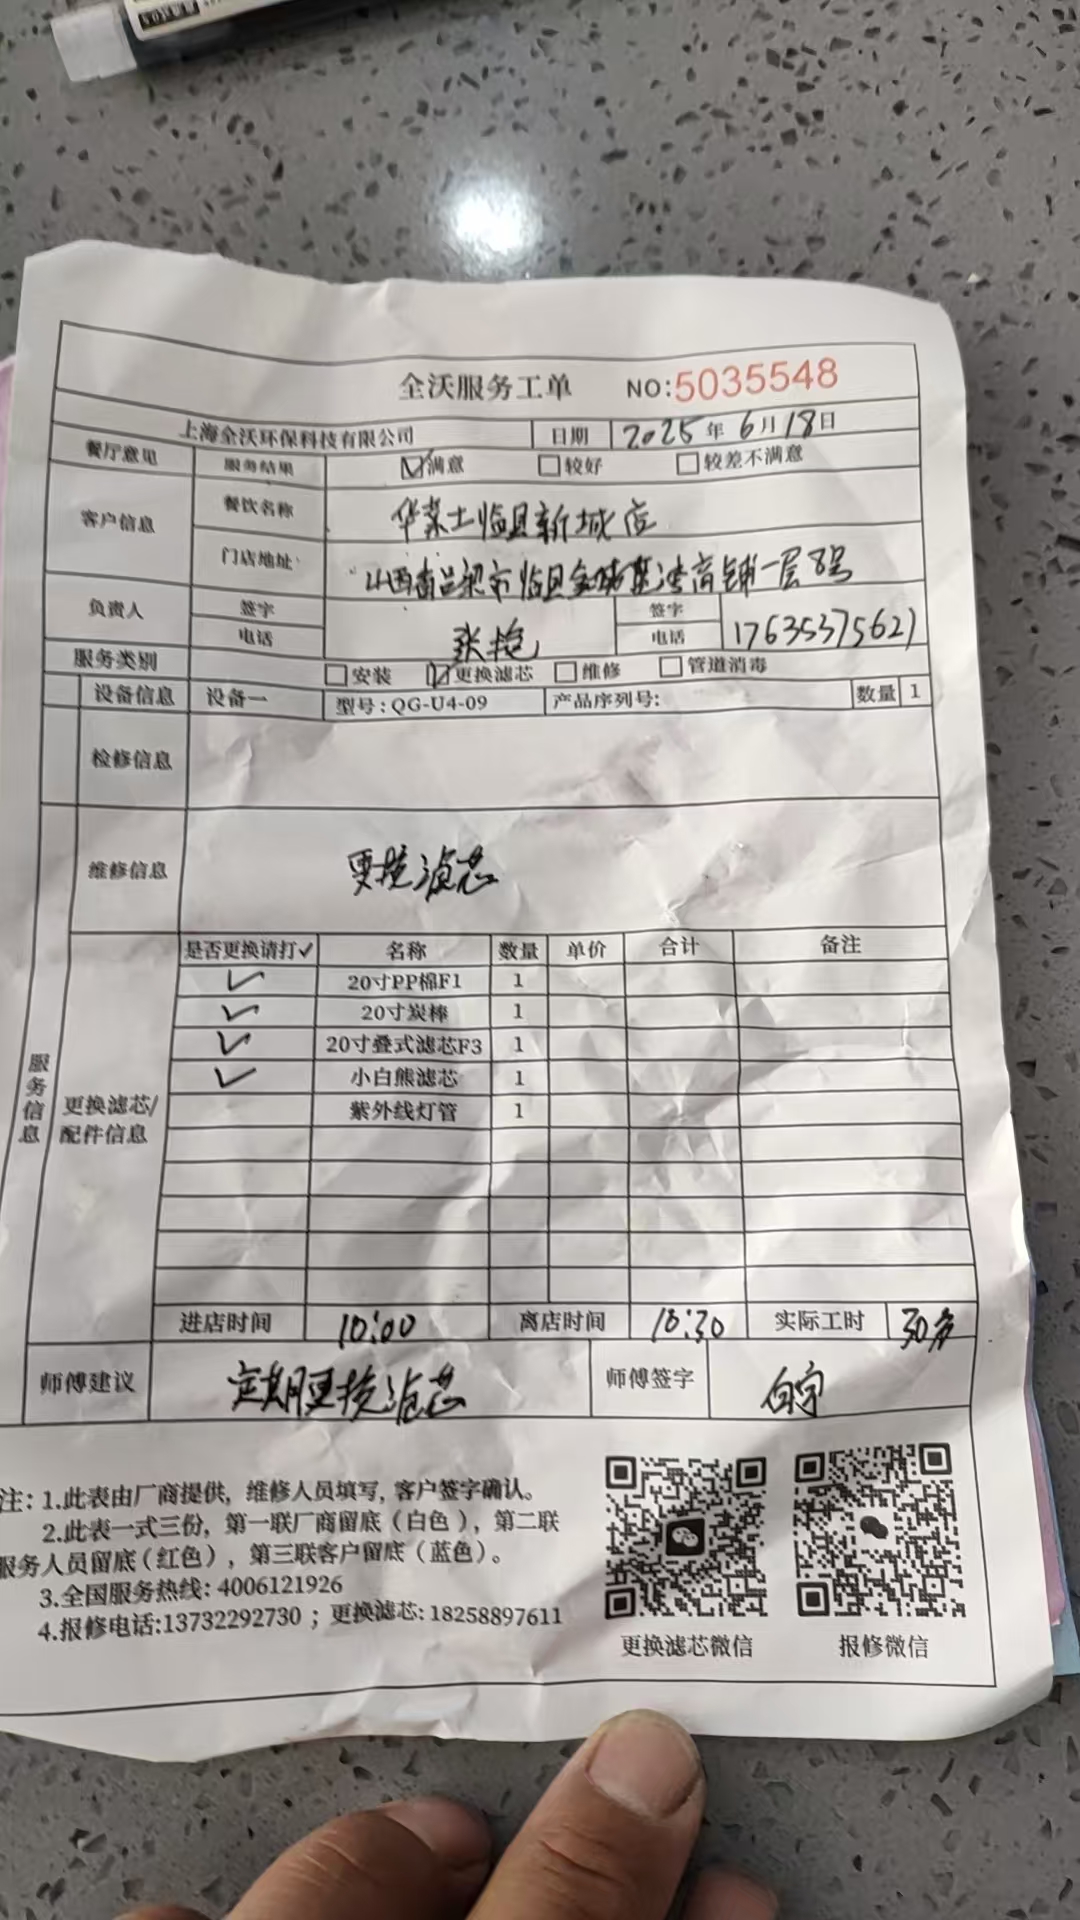 全沃服务工单 NO:5035548
上海全沃环保科技有限公司 日期 2025年6月18日
餐厅意见 服务结果 ☑满意 □较好 □较差不满意
客户信息 餐饮名称 华莱士临县新城店
门店地址 山西省吕梁市临县 商铺一层8号
负责人 签字 张艳 签字
电话 电话 17635375627
服务类别 □安装 ☑更换滤芯 □维修 □管道消毒
设备信息 设备一 型号:QG-U4-09 产品序列号: 数量 1
检修信息
维修信息 更换滤芯
服务信息
更换滤芯/配件信息
是否更换请打✓ 名称 数量 单价 合计 备注
✓ 20寸PP棉F1 1
✓ 20寸炭棒 1
✓ 20寸叠式滤芯F3 1
✓ 小白熊滤芯 1
紫外线灯管 1
进店时间 10:00 离店时间 10:30 实际工时 30分
师傅建议 定期更换滤芯 师傅签字 白宇
注: 1.此表由厂商提供, 维修人员填写, 客户签字确认。
2.此表一式三份, 第一联厂商留底(白色), 第二联
服务人员留底(红色), 第三联客户留底(蓝色)。
3.全国服务热线: 4006121926
4.报修电话:13732292730 ; 更换滤芯: 18258897611
更换滤芯微信 报修微信